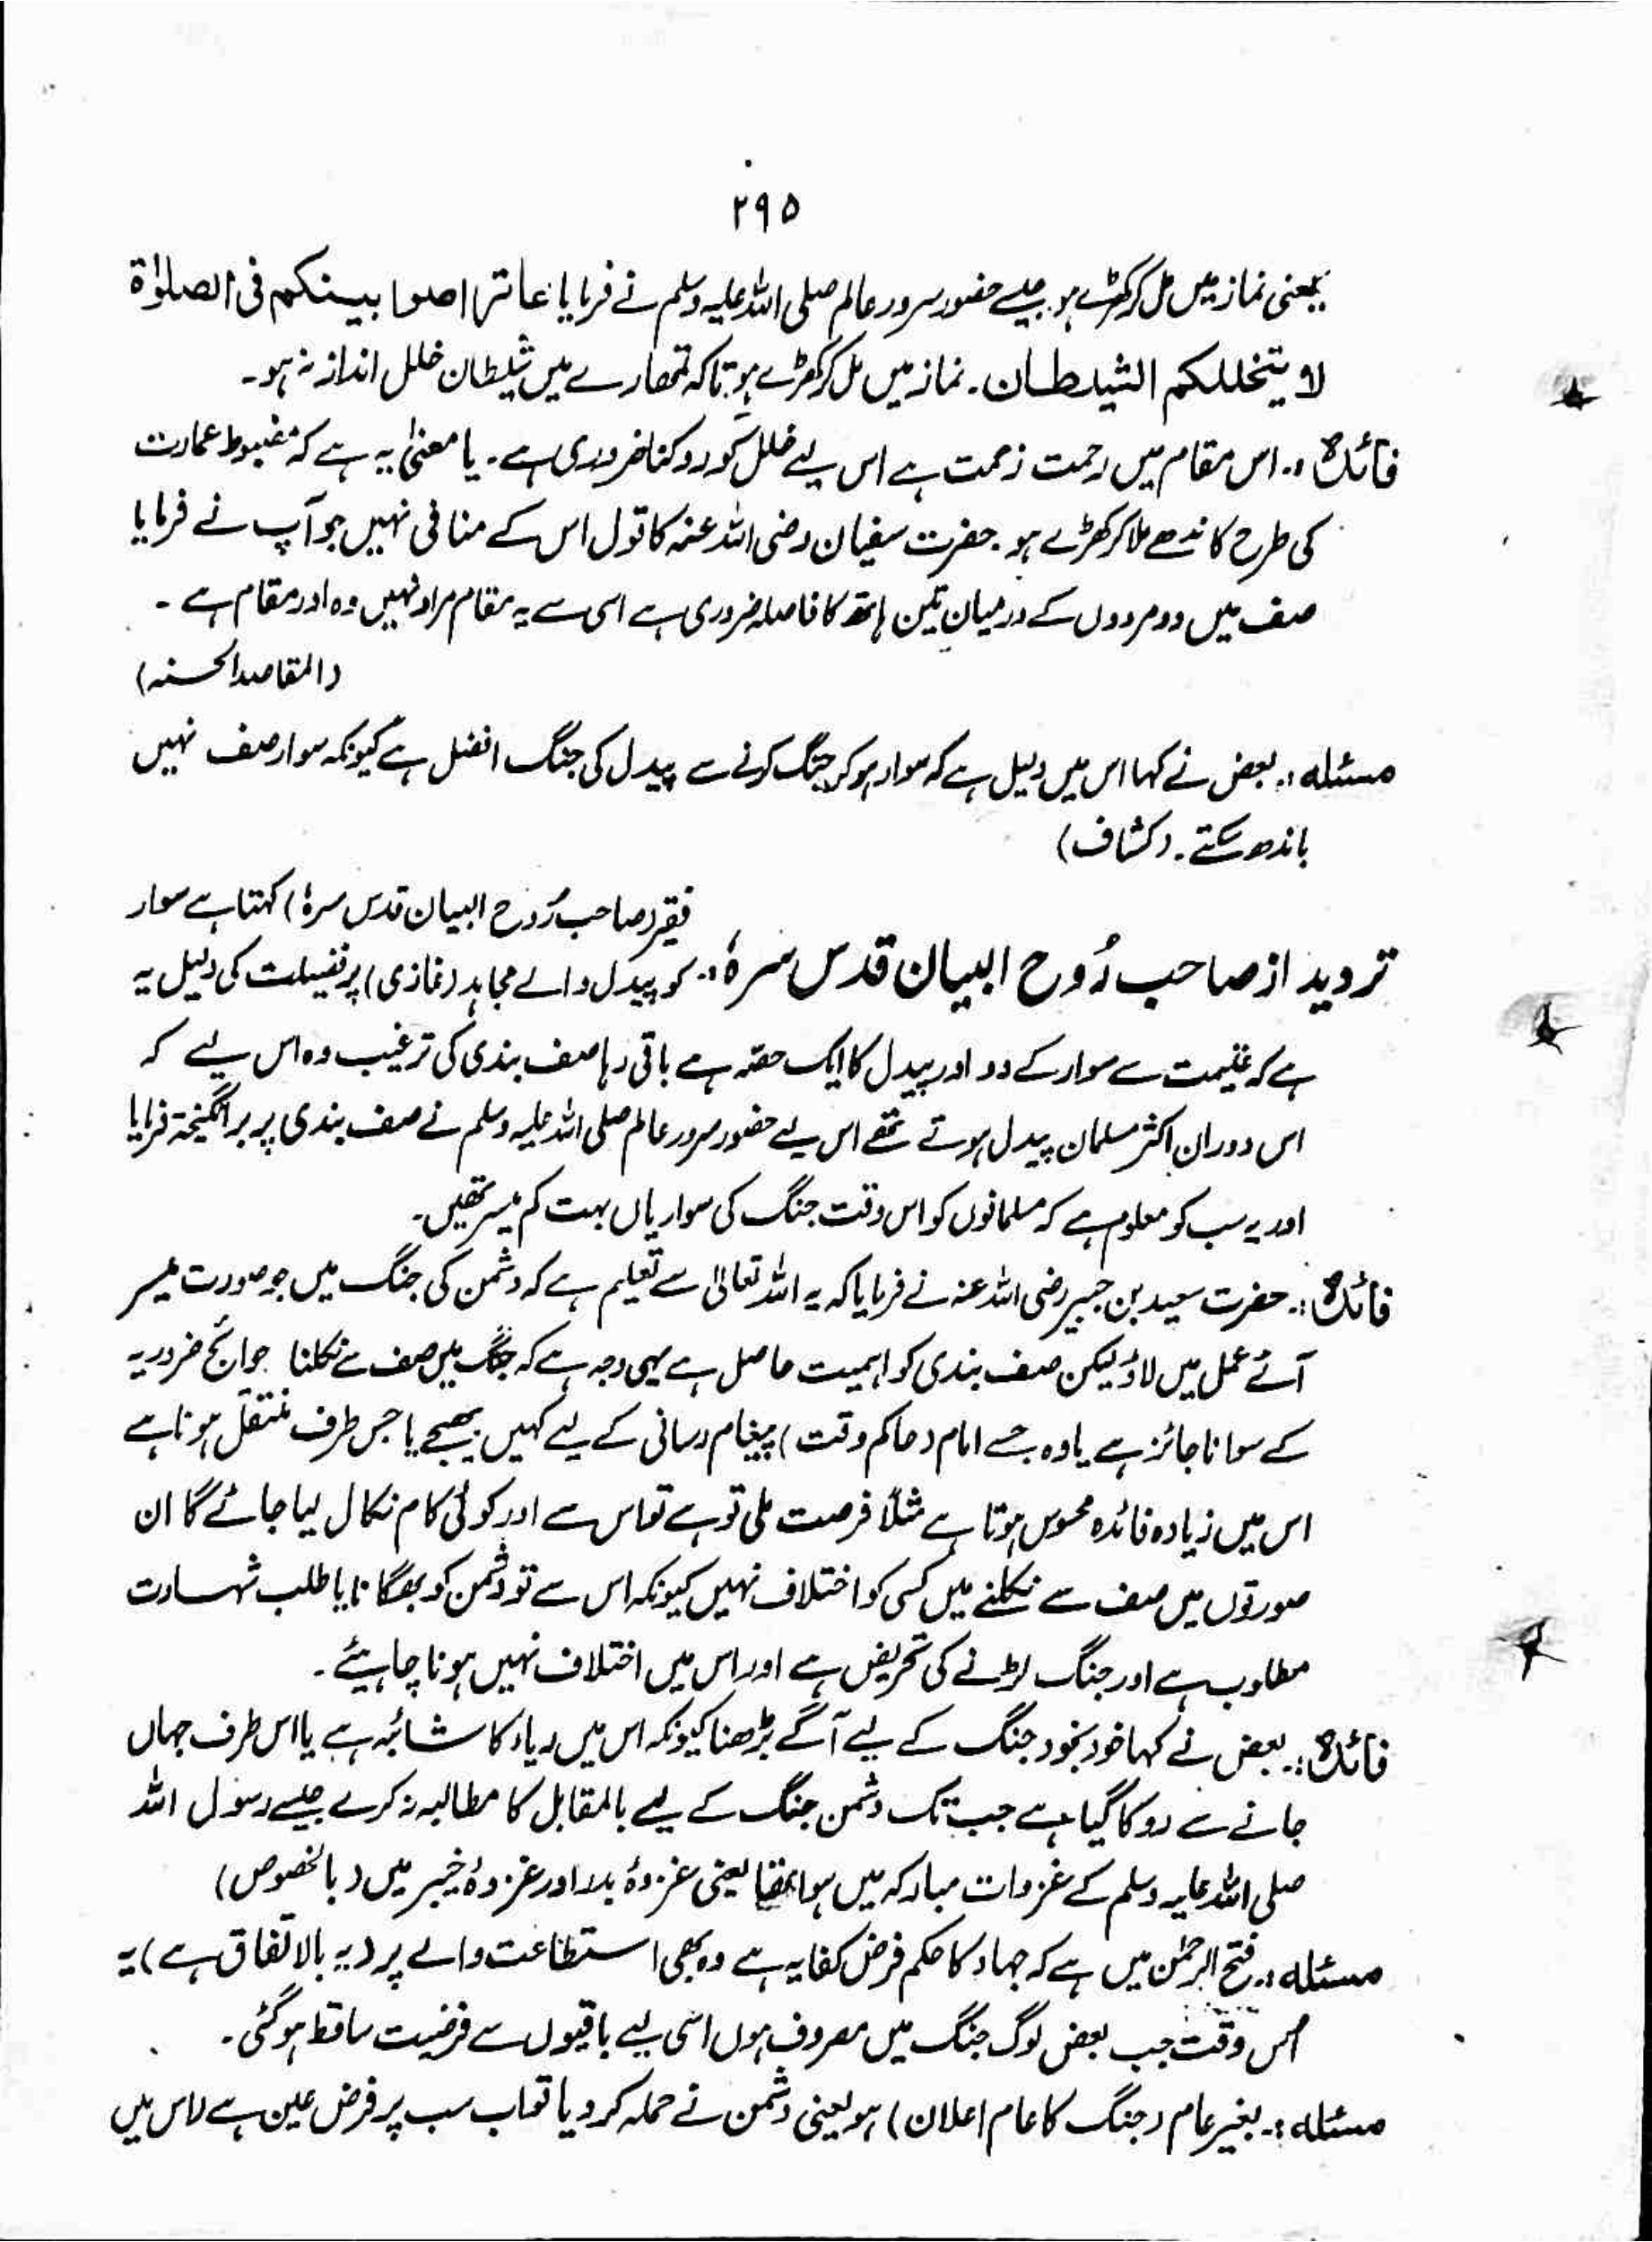 ۲۹۵
بمعنی نماز میں مل کر کھڑے ہو۔ جیسے حضور سرور عالم صلی اللہ علیہ وسلم نے فرمایا بینکم فی الصلوٰۃ
لا یتخللکم الشیطان۔ نماز میں مل کر کھڑے ہو تاکہ تمھارے میں شیطان خلل انداز نہ ہو۔
فائدہ :۔ اس مقام میں رحمت زحمت ہے اس لیے خلل کو روکنا ضروری ہے۔ یا معنیٰ یہ ہے کہ مضبوط عمارت
کی طرح کاندھے ملا کر کھڑے ہو۔ حضرت سفیان رضی اللہ عنہ کا قول اس کے منافی نہیں جو آپ نے فرمایا
صف میں دو مردوں کے درمیان تین ہاتھ کا فاصلہ ضروری ہے اسی سے یہ مقام مراد نہیں وہ اور مقام ہے۔
(المقاصد الحسنہ)
مسئلہ :۔ بعض نے کہا اس میں دلیل ہے کہ سوار ہو کر جنگ کرنے سے پیدل کی جنگ افضل ہے کیونکہ سوار صف نہیں
باندھ سکتے۔ (کشاف)
فقیر (صاحب رُوح البیان قدس سرہٗ) کہتا ہے سوار
تردید از صاحب رُوح البیان قدس سرہٗ :۔ کو پیدل والے مجاہد (غازی) پر فضیلت کی دلیل یہ
ہے کہ غنیمت سے سوار کے دو اور پیدل کا ایک حصّہ ہے باقی رہا صف بندی کی ترغیب وہ اس لیے کہ
اس دوران اکثر مسلمان پیدل ہوتے تھے اس لیے حضور سرور عالم صلی اللہ علیہ وسلم نے صف بندی پر برانگیختہ فرمایا
اور یہ سب کو معلوم ہے کہ مسلمانوں کو اس وقت جنگ کی سواریاں بہت کم میسر تھیں۔
فائدہ :۔ حضرت سعید بن جبیر رضی اللہ عنہ نے فرمایا کہ یہ اللہ تعالیٰ سے تعلیم ہے کہ دشمن کی جنگ میں جو صورت میسر
آئے عمل میں لاؤ لیکن صف بندی کو اہمیت حاصل ہے یہی وجہ ہے کہ جنگ میں صف سے نکلنا حوائج ضروریہ
کے سوا ناجائز ہے یا وہ جسے امام (حاکم وقت) پیغام رسانی کے لیے کہیں بھیجے یا جس طرف منتقل ہونا ہے
اس میں زیادہ فائدہ محسوس ہوتا ہے مثلاً فرصت ملی تو ہے تو اس سے اور کوئی کام نکال لیا جائے گا ان
صورتوں میں صف سے نکلنے میں کسی کو اختلاف نہیں کیونکہ اس سے تو دشمن کو بھگانا یا طلب شہادت
مطلوب ہے اور جنگ لڑنے کی تحریض ہے اور اس میں اختلاف نہیں ہونا چاہیئے۔
فائدہ :۔ بعض نے کہا خود بخود جنگ کے لیے آگے بڑھنا کیونکہ اس میں ریاء کا شائبہ ہے یا اس طرف جہاں
جانے سے روکا گیا ہے جب تک دشمن جنگ کے لیے بالمقابل کا مطالبہ نہ کرے جیسے رسول اللہ
صلی اللہ علیہ وسلم کے غزوات مبارکہ میں ہوا تھا یعنی غزوۂ بدر اور غزوۂ خیبر میں (بالخصوص)
مسئلہ :۔ فتح الرحمٰن میں ہے کہ جہاد کا حکم فرض کفایہ ہے وہ بھی استطاعت والے پر (یہ بالاتفاق ہے) یہ
اس وقت جب بعض لوگ جنگ میں مصروف ہوں اسی لیے باقیوں سے فرضیت ساقط ہو گئی۔
مسئلہ :۔ بغیر عام (جنگ کا عام اعلان) ہو یعنی دشمن نے حملہ کر دیا تو اب سب پر فرض عین ہے اس میں